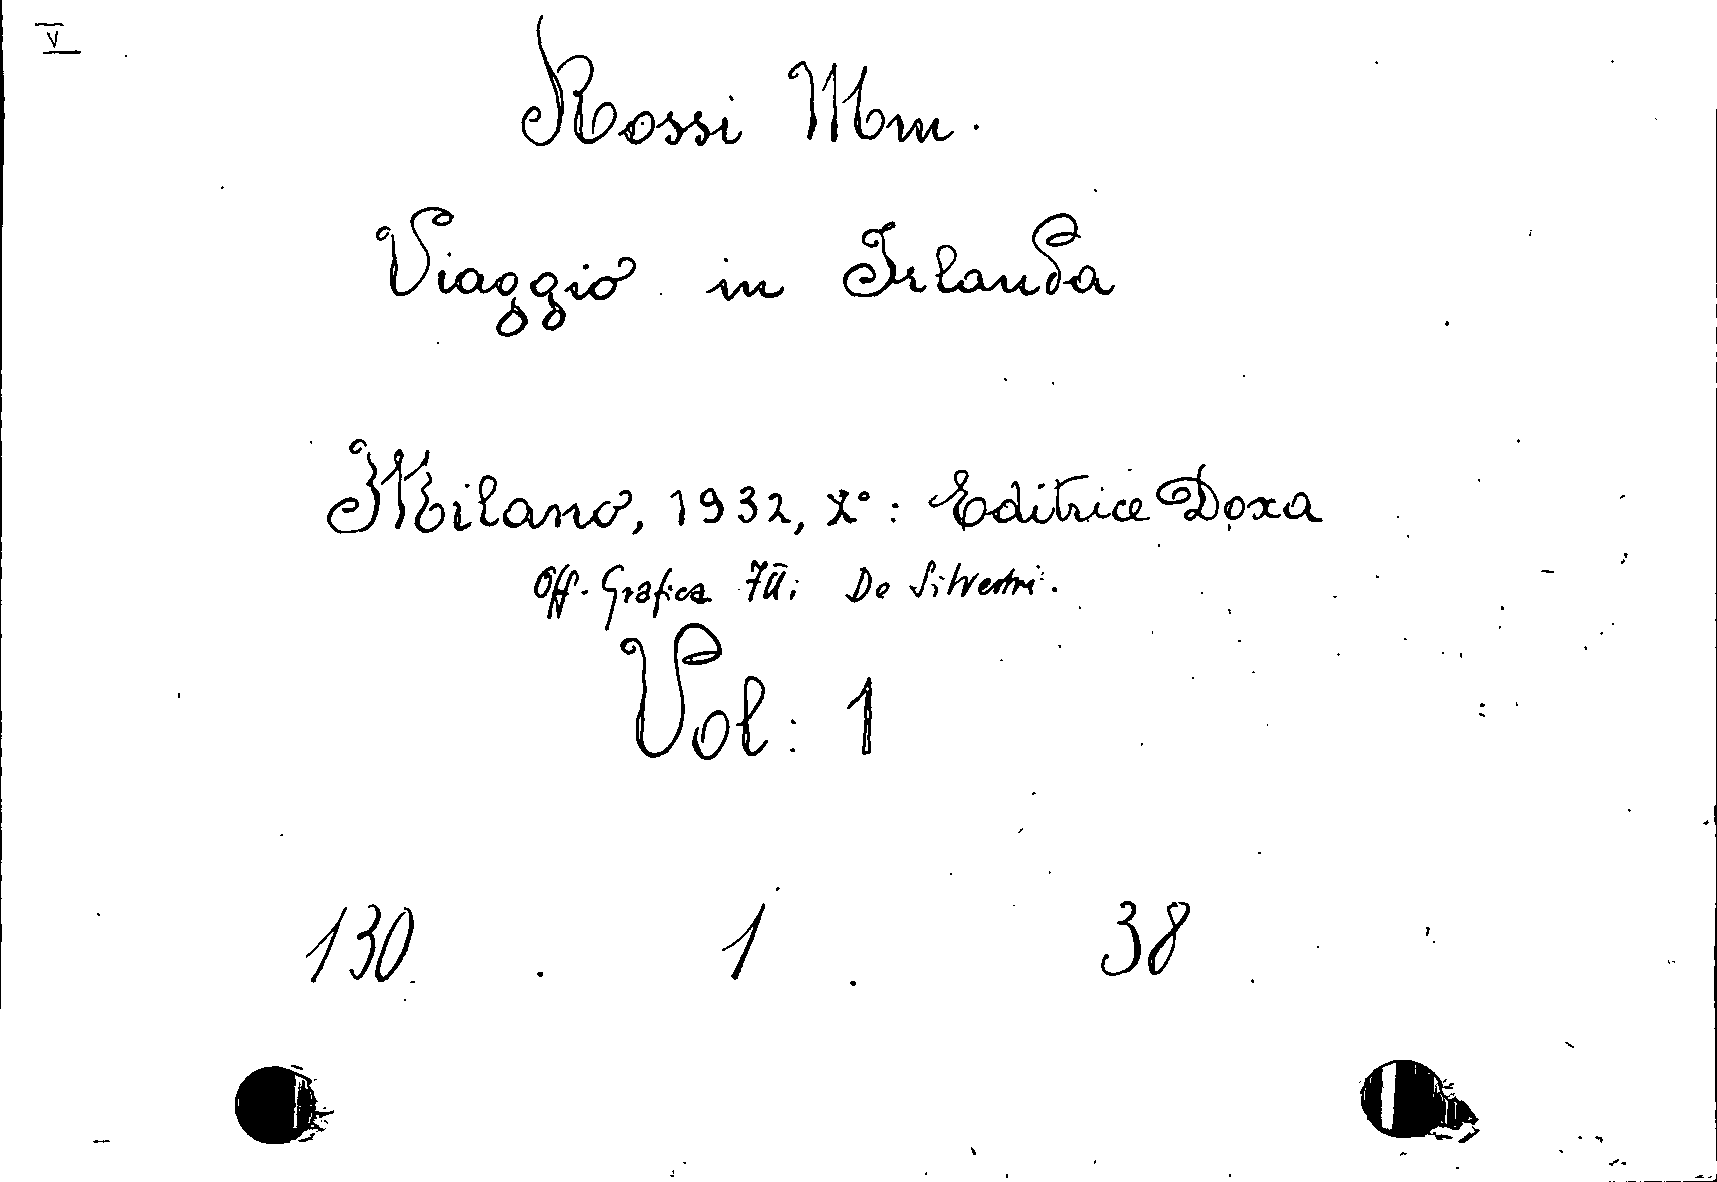 V
Rossi Mm.
Viaggio in Irlanda
Milano, 1932, X°: Editrice Doxa
Off. Grafica Flli De Silvestri.
Vol: 1
130 . 1 . 38